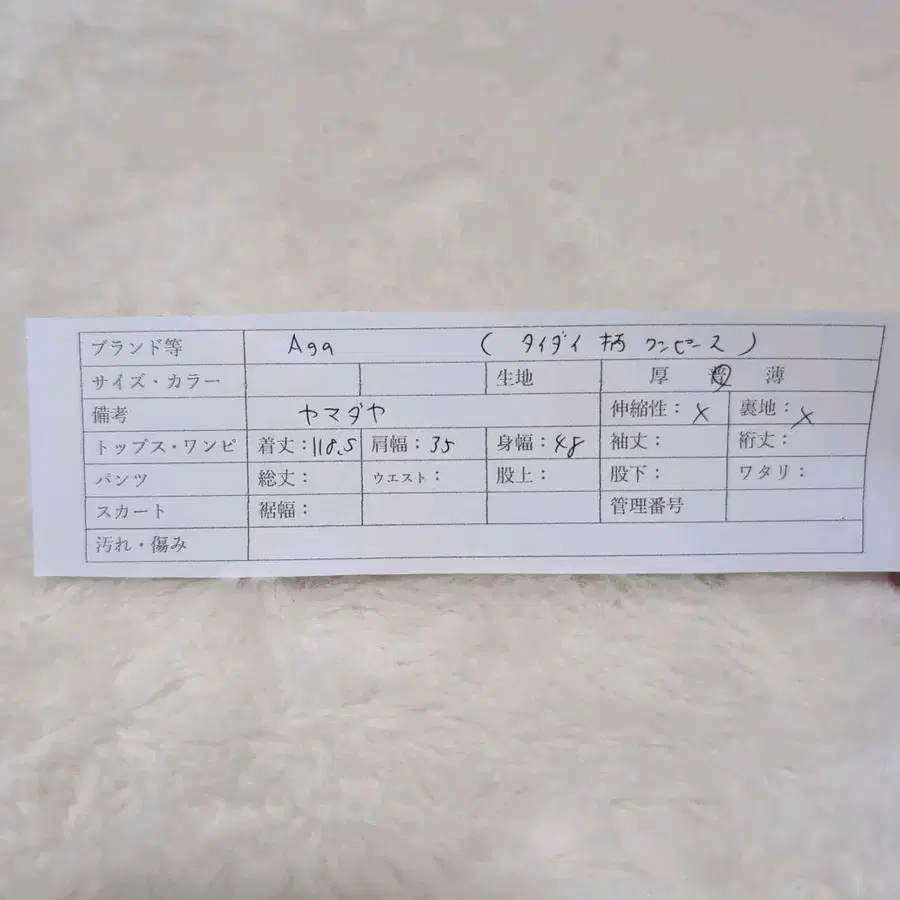 ブランド等 Aga (タイダイ柄ワンピース)
サイズ・カラー 生地 厚 普 薄
備考 ヤマダヤ 伸縮性：× 裏地：×
トップス・ワンピ 着丈：118.5 肩幅：35 身幅：48 袖丈： 裄丈：
パンツ 総丈： ウエスト： 股上： 股下： ワタリ：
スカート 裾幅： 管理番号
汚れ・傷み